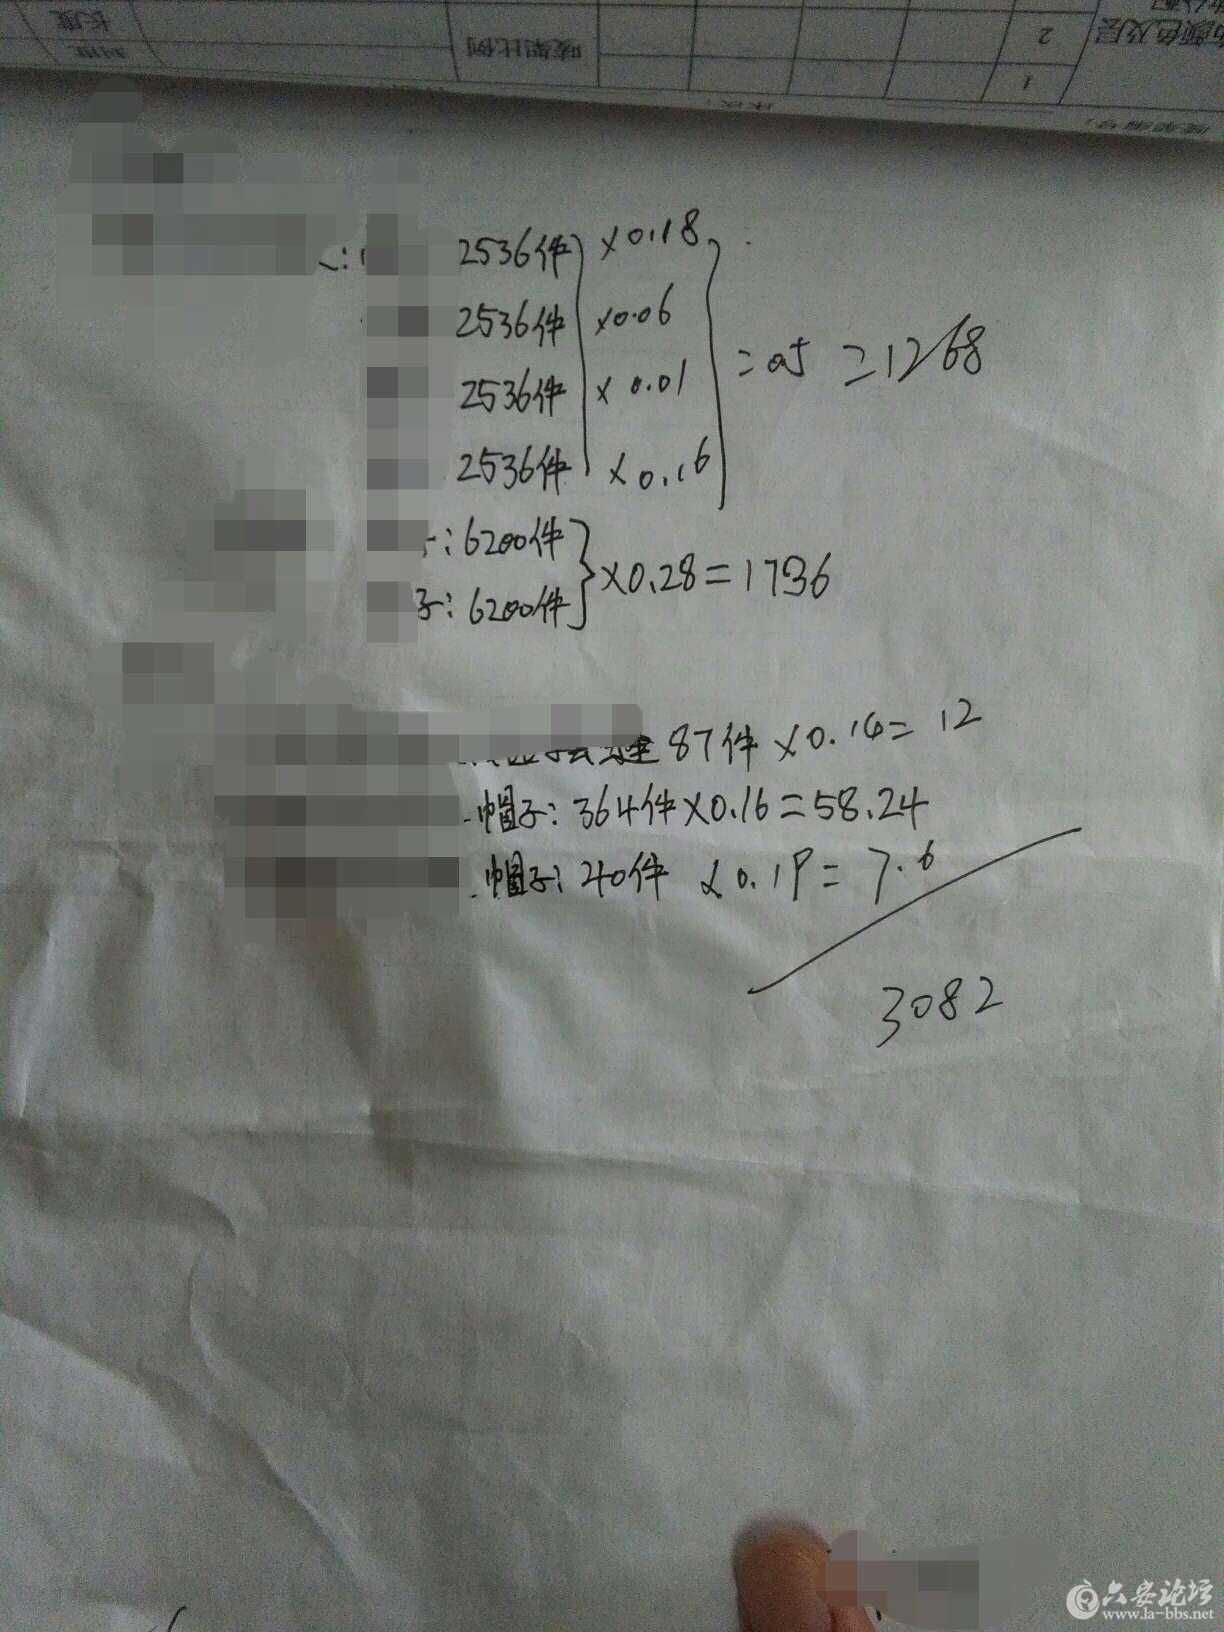 长度
唛架比例
2
颜色及层
1
2536件 ×0.18
2536件 ×0.06
2536件 ×0.01
2536件 ×0.16
=0.5 =1268
:6200件
子:6200件
×0.28=1736
87件 ×0.14= 12
帽子:364件×0.16=58.24
帽子:40件 ×0.19= 7.6
3082
六安论坛
www.la-bbs.net